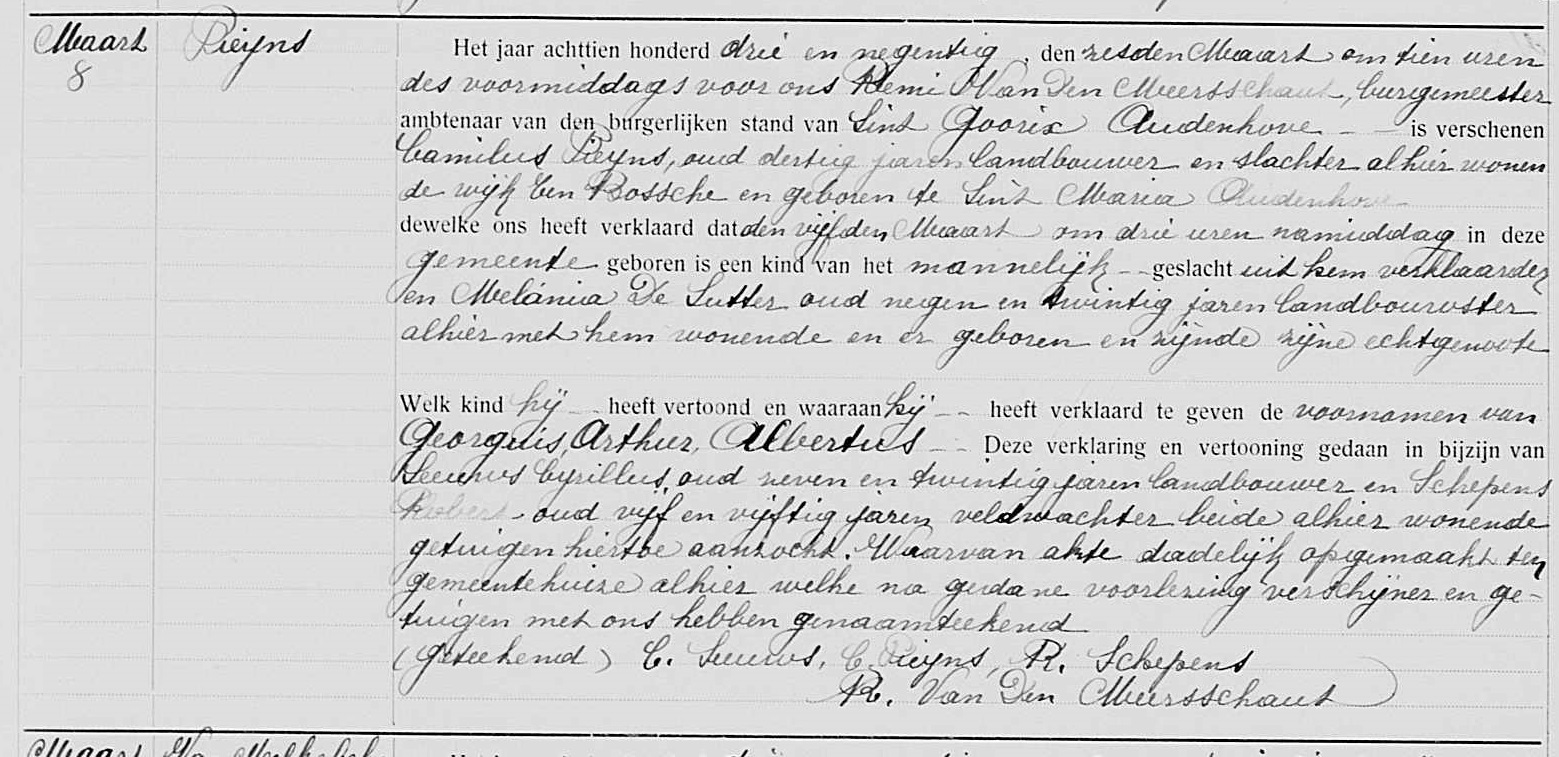 Maart Pieyns
8
Het jaar achttien honderd drie en negentig, den zesden Maart om tien uren
des voormiddags voor ons Remi Van Den Meersschaut, burgemeester
ambtenaar van den burgerlijken stand van Sint Goorix Audenhove - - is verschenen
Camilus Pieyns, oud dertig jaren landbouwer en slachter alhier wonen
de wijk Ten Bossche en geboren te Sint Maria Audenhove -
dewelke ons heeft verklaard dat den vijfden Maart om drie uren namiddag in deze
gemeente geboren is een kind van het mannelijk - - geslacht uit hem verklaarder
en Melánia De Sutter oud negen en twintig jaren landbouwster
alhier met hem wonende en er geboren en zijnde zijne echtgenoote
Welk kind hij - heeft vertoond en waaraan hij - - heeft verklaard te geven de voornamen van
Georguis, Arthur, Albertus - - Deze verklaring en vertooning gedaan in bijzijn van
Leeuws Cyrillus, oud zeven en twintig jaren landbouwer en Schepens
Robert - oud vijf en vijftig jaren veldwachter beide alhier wonende
getuigen hiertoe aanzocht. Waarvan akte dadelijk opgemaakt ten
gemeentehuize alhier welke na gedane voorlezing verschijner en ge-
tuigen met ons hebben genaamteekend
(geteekend) C. Leeuws, C. Pieyns, R. Schepens
R. Van Den Meersschaut
Maart